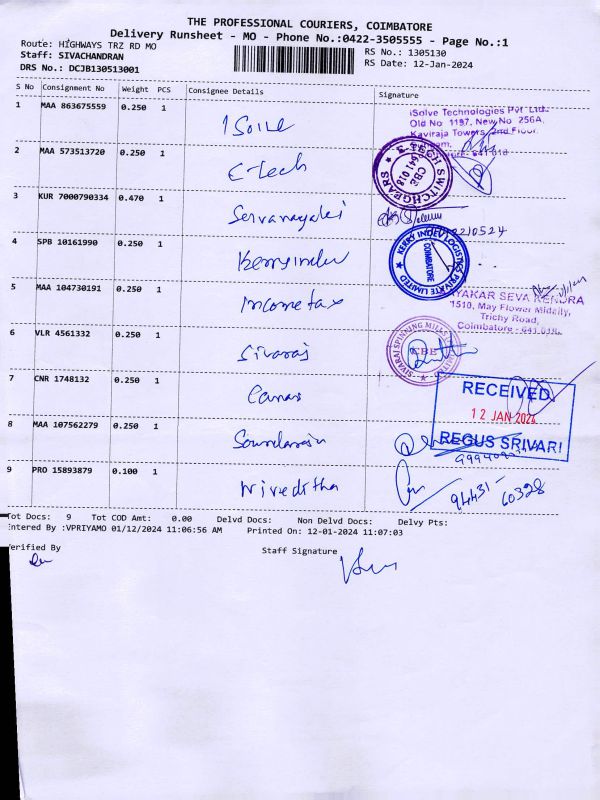 THE PROFESSIONAL COURIERS, COIMBATORE
Delivery Runsheet - MO - Phone No.:0422-3505555 - Page No.:1
Route: HIGHWAYS TRZ RD MO
RS No.: 1305130
Staff: SIVACHANDRAN
RS Date: 12-Jan-2024
DRS No.: DCJB130513001
S No Consignment No Weight PCS Consignee Details Signature
1 MAA 863675559 0.250 1 iSolve
iSolve Technologies Pvt. Ltd.
Old No 1197, New No 256A,
Kaviraja Towers, 2nd Floor,
2 MAA 573513720 0.250 1 E-Tech
SWITCHGEARS
CBE
641 018
3 KUR 7000790334 0.470 1 Servanayaki
4 SPB 10161990 0.250 1 Kerryindev
KERRY INDEV LOGISTICS PRIVATE LIMITED
COIMBATORE
5 MAA 104730191 0.250 1 Income tax
AYAKAR SEVA KENDRA
1510, May Flower Midcity,
Trichy Road,
Coimbatore - 641 018.
6 VLR 4561332 0.250 1 Sivaraj
SIVARAJ SPINNING MILLS
CBE
7 CNR 1748132 0.250 1 Canas
RECEIVED
12 JAN 2024
REGUS SRIVARI
8 MAA 107562279 0.250 1 Soundarajn
9 PRO 15893879 0.100 1 Niveditha
94431-60328
Tot Docs: 9 Tot COD Amt: 0.00 Delvd Docs: Non Delvd Docs: Delvy Pts:
Entered By :VPRIYAMO 01/12/2024 11:06:56 AM Printed On: 12-01-2024 11:07:03
Verified By
Staff Signature